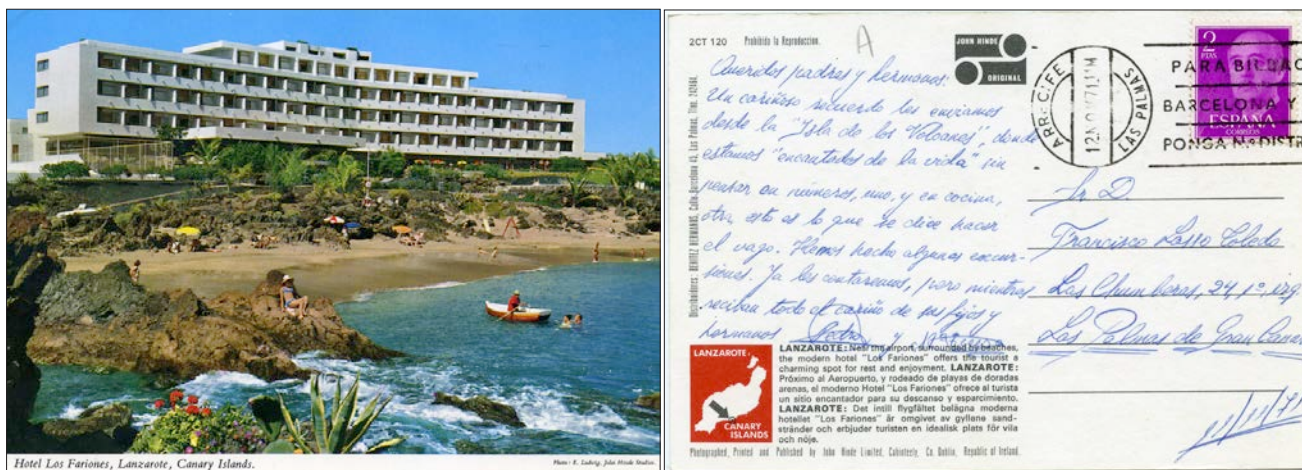 Hotel Los Fariones, Lanzarote, Canary Islands.
Photo: E. Ludwig, John Hinde Studios.
2CT 120 Prohibida la Reproduccion.
A
JOHN HINDE
ORIGINAL
ARRECIFE
LAS PALMAS
PARA BILBAO
BARCELONA Y
PONGA Nº DISTR
2
PTAS
ESPAÑA
CORREOS
Queridos padres y hermanos:
Un cariñoso recuerdo les enviamos
desde la "Isla de los Volcanes", donde
estamos "encantados de la vida" sin
pensar en números, uno, y en cocina,
otra, esto es lo que se dice hacer
el vago. Hemos hecho algunas excur-
siones. Ya les contaremos, pero mientras
reciban todo el cariño de sus hijos y
hermanos Pedro y
Sr. D.
Francisco Lasso Toledo
Las Chumberas, 24 1º izq.
Las Palmas de Gran Canar
11/11/71
Distribuidores: BENITEZ HERMANOS, Calle Barcelona 45, Las Palmas, Tfno. 242664.
LANZAROTE
CANARY
ISLANDS
LANZAROTE: Near the airport, surrounded by beaches,
the modern hotel "Los Fariones" offers the tourist a
charming spot for rest and enjoyment. LANZAROTE:
Próximo al Aeropuerto, y rodeado de playas de doradas
arenas, el moderno Hotel "Los Fariones" ofrece al turista
un sitio encantador para su descanso y esparcimiento.
LANZAROTE: Det intill flygfältet belägna moderna
hotellet "Los Fariones" är omgivet av gyllene sand-
stränder och erbjuder turisten en idealisk plats för vila
och nöje.
Photographed, Printed and Published by John Hinde Limited, Cabinteely, Co. Dublin, Republic of Ireland.